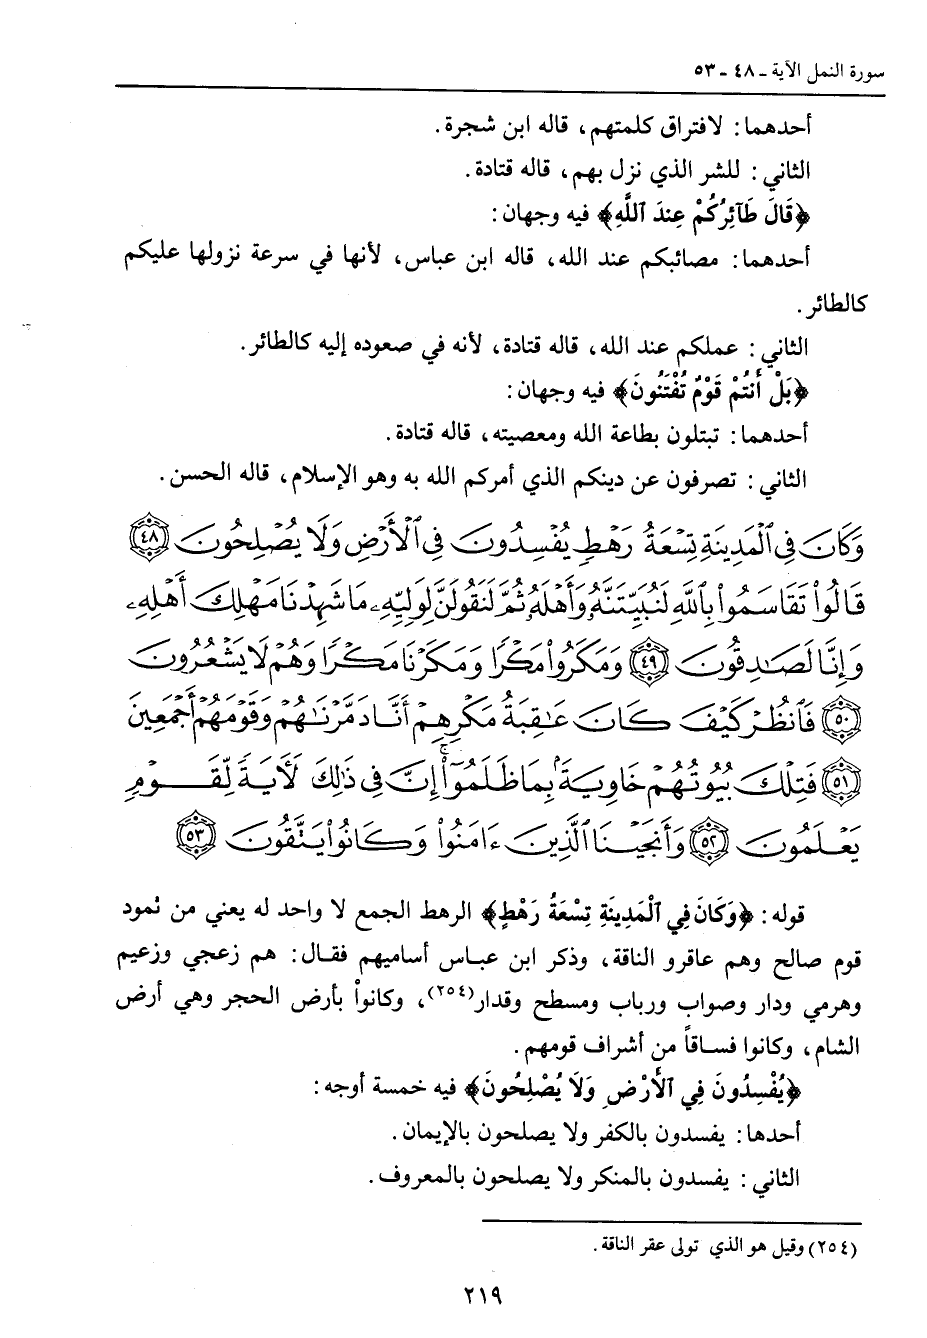 سورة النمل الآية - ٤٨ - ٥٣
أحدهما: لافتراق كلمتهم، قاله ابن شجرة.
الثاني: للشر الذي نزل بهم، قاله قتادة.
﴿قَالَ طَآئِرُكُمْ عِندَ ٱللَّهِ﴾ فيه وجهان:
أحدهما: مصائبكم عند الله، قاله ابن عباس، لأنها في سرعة نزولها عليكم
كالطائر.
الثاني: عملكم عند الله، قاله قتادة، لأنه في صعوده إليه كالطائر.
﴿بَلْ أَنتُمْ قَوْمٌ تُفْتَنُونَ﴾ فيه وجهان:
أحدهما: تبتلون بطاعة الله ومعصيته، قاله قتادة.
الثاني: تصرفون عن دينكم الذي أمركم الله به وهو الإسلام، قاله الحسن.
وَكَانَ فِي ٱلْمَدِينَةِ تِسْعَةُ رَهْطٍ يُفْسِدُونَ فِي ٱلْأَرْضِ وَلَا يُصْلِحُونَ ٤٨
قَالُوا۟ تَقَاسَمُوا۟ بِٱللَّهِ لَنُبَيِّتَنَّهُۥ وَأَهْلَهُۥ ثُمَّ لَنَقُولَنَّ لِوَلِيِّهِۦ مَا شَهِدْنَا مَهْلِكَ أَهْلِهِۦ
وَإِنَّا لَصَـٰدِقُونَ ٤٩ وَمَكَرُوا۟ مَكْرًا وَمَكَرْنَا مَكْرًا وَهُمْ لَا يَشْعُرُونَ
٥٠ فَٱنظُرْ كَيْفَ كَانَ عَـٰقِبَةُ مَكْرِهِمْ أَنَّا دَمَّرْنَـٰهُمْ وَقَوْمَهُمْ أَجْمَعِينَ
٥١ فَتِلْكَ بُيُوتُهُمْ خَاوِيَةًۢ بِمَا ظَلَمُوٓا۟ ۗ إِنَّ فِي ذَٰلِكَ لَـَٔايَةً لِّقَوْمٍ
يَعْلَمُونَ ٥٢ وَأَنجَيْنَا ٱلَّذِينَ ءَامَنُوا۟ وَكَانُوا۟ يَتَّقُونَ ٥٣
قوله: ﴿وَكَانَ فِي ٱلْمَدِينَةِ تِسْعَةُ رَهْطٍ﴾ الرهط الجمع لا واحد له يعني من ثمود
قوم صالح وهم عاقرو الناقة، وذكر ابن عباس أساميهم فقال: هم زعجي وزعيم
وهرمي ودار وصواب ورباب ومسطح وقدار(٢٥٤)، وكانواْ بأرض الحجر وهي أرض
الشام، وكانوا فساقاً من أشراف قومهم.
﴿يُفْسِدُونَ فِي ٱلْأَرْضِ وَلَا يُصْلِحُونَ﴾ فيه خمسة أوجه:
أحدها: يفسدون بالكفر ولا يصلحون بالإيمان.
الثاني: يفسدون بالمنكر ولا يصلحون بالمعروف.
(٢٥٤) وقيل هو الذي تولى عقر الناقة.
٢١٩